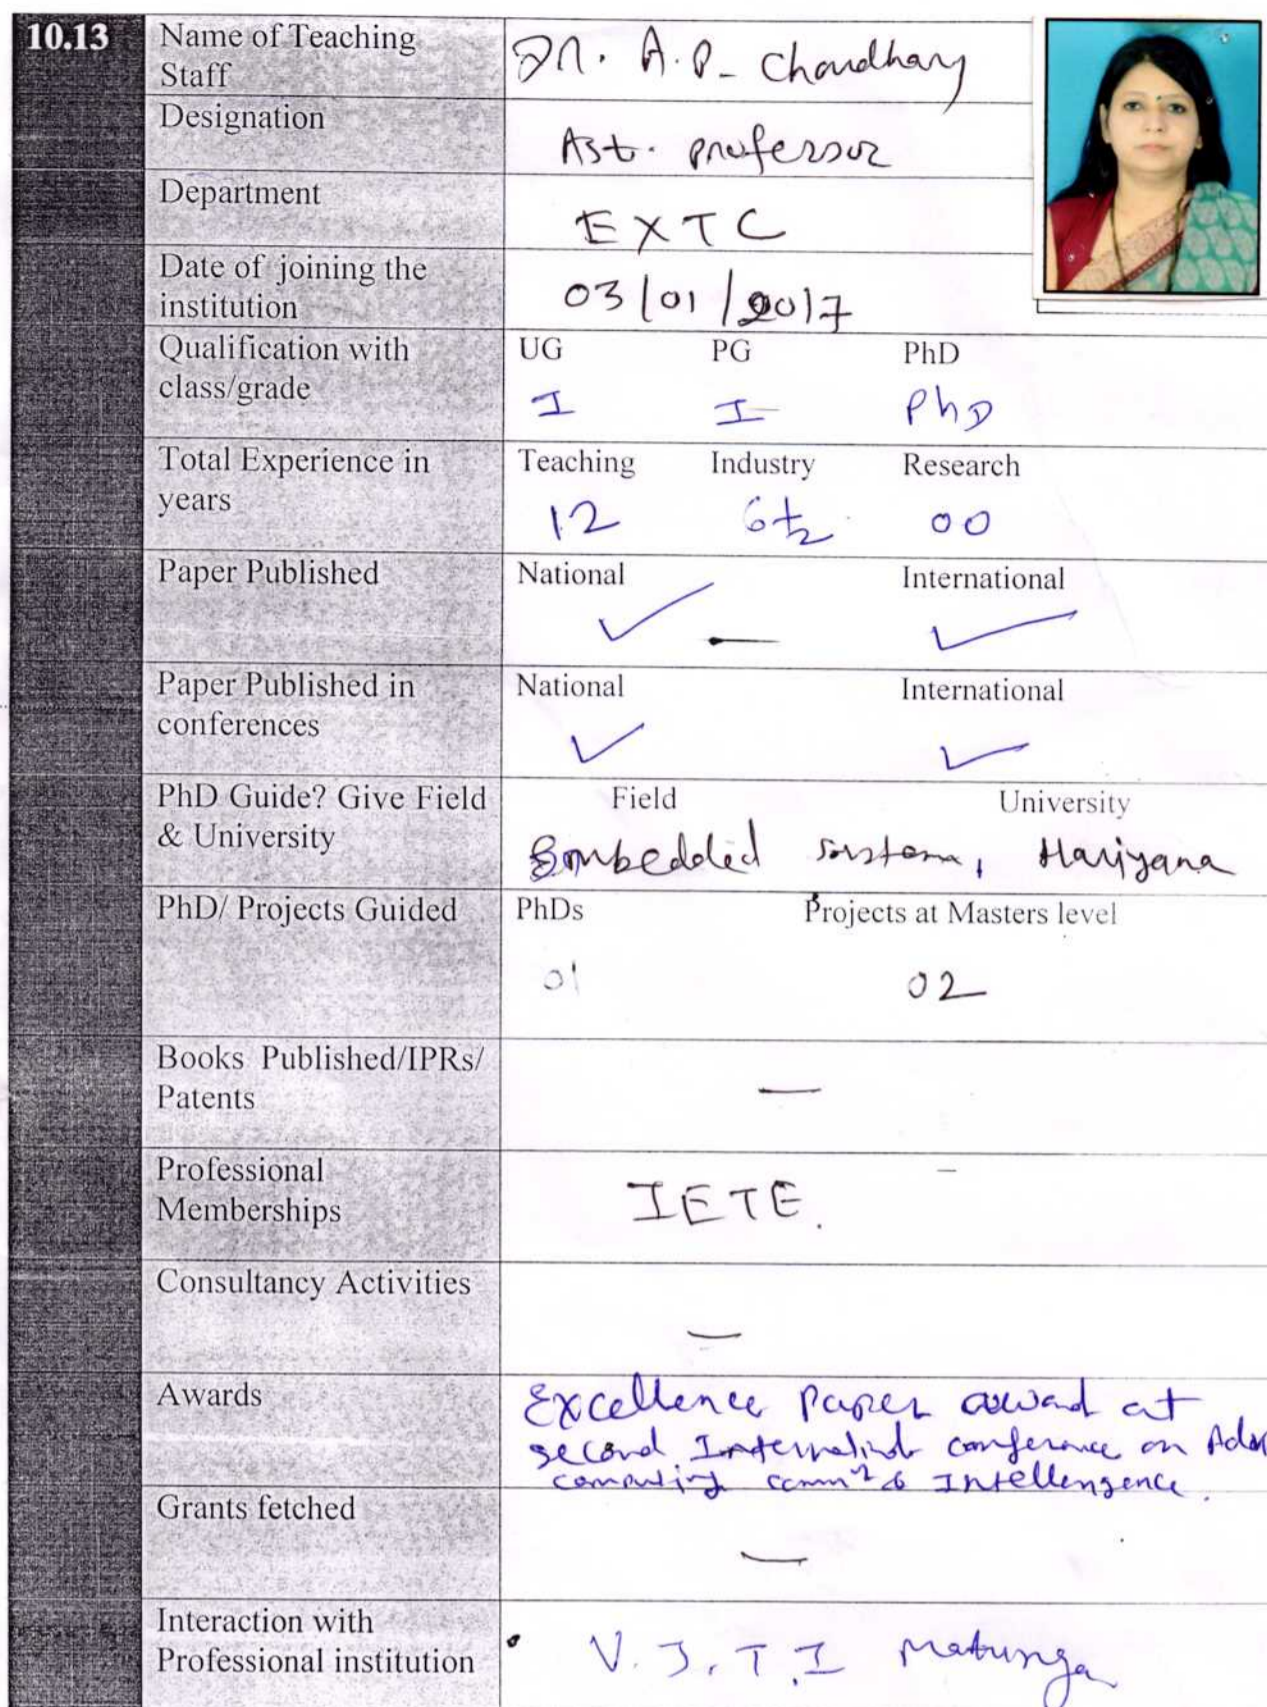 10.13 Name of Teaching Dr. A.P. Chaudhary
Staff
Designation
Ast. professor
Department
EXTC
Date of joining the
institution 03/01/2017
Qualification with UG PG PhD
class/grade I I PhD
Total Experience in Teaching Industry Research
years 12 00
Paper Published National International
✓ — ✓
Paper Published in National International
conferences ✓ ✓
PhD Guide? Give Field Field University
& University Embedded system, Hariyana
PhD/ Projects Guided PhDs Projects at Masters level
01 02
Books Published/IPRs/
Patents —
Professional
Memberships IETE.
Consultancy Activities
—
Awards Excellence Paper award at
second International conference on
computing commn & Intellengence.
Grants fetched
—
Interaction with
Professional institution V.J.T.I Matunga